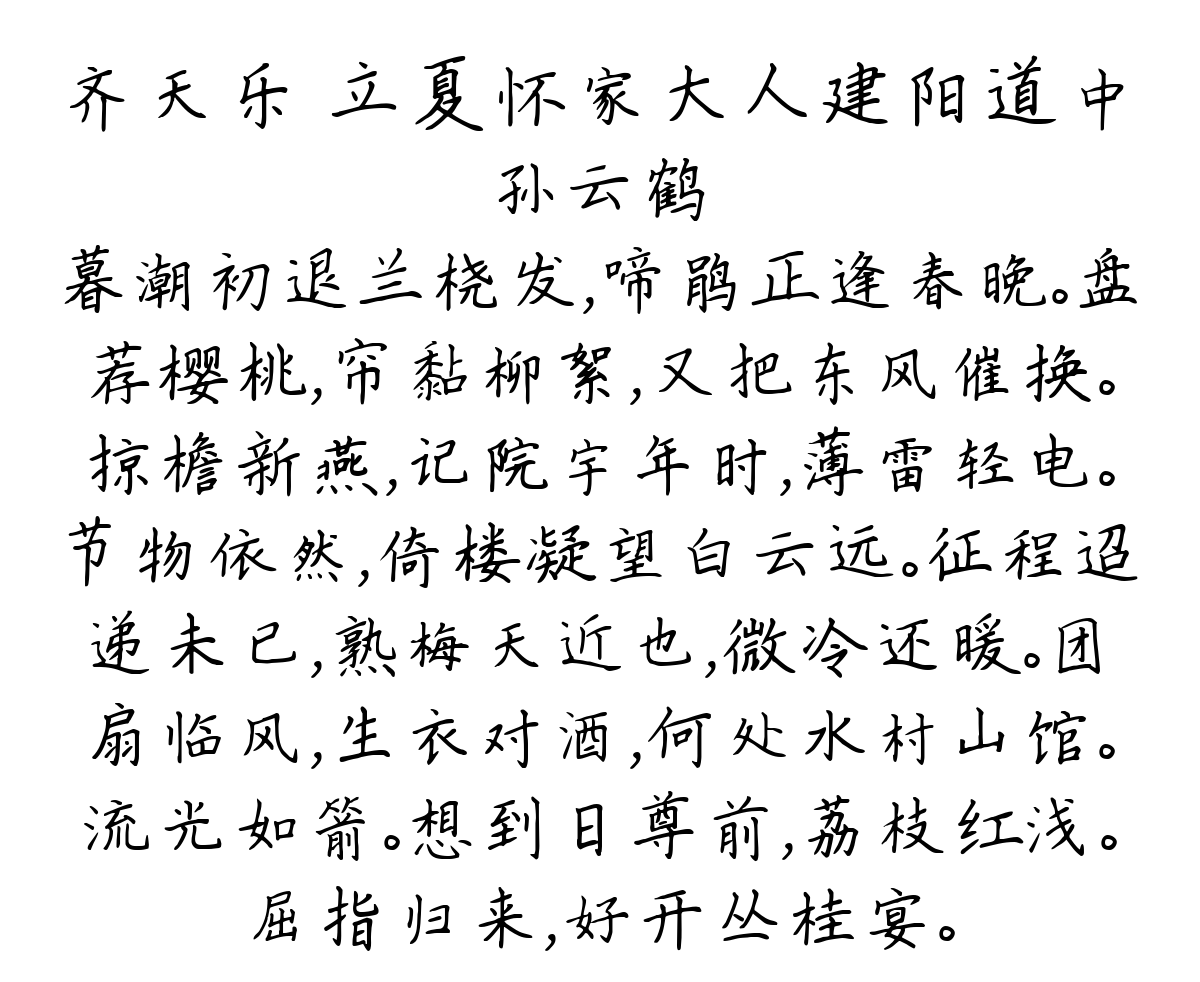 齐天乐 立夏怀家大人建阳道中
孙云鹤
暮潮初退兰桡发,啼鹃正逢春晚。盘
荐樱桃,帘黏柳絮,又把东风催换。
掠檐新燕,记院宇年时,薄雷轻电。
节物依然,倚楼凝望白云远。征程迢
递未已,熟梅天近也,微冷还暖。团
扇临风,生衣对酒,何处水村山馆。
流光如箭。想到日尊前,荔枝红浅。
屈指归来,好开丛桂宴。